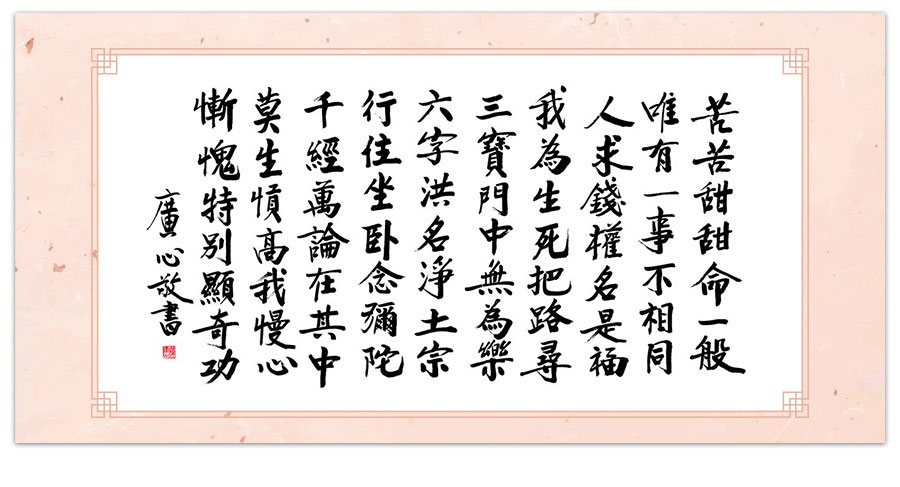 苦苦甜甜命一般
唯有一事不相同
人求錢權名是福
我為生死把路尋
三寶門中無為樂
六字洪名淨土宗
行住坐卧念彌陀
千經萬論在其中
莫生愩高我慢心
慚愧特別顯奇功
廣心敬書